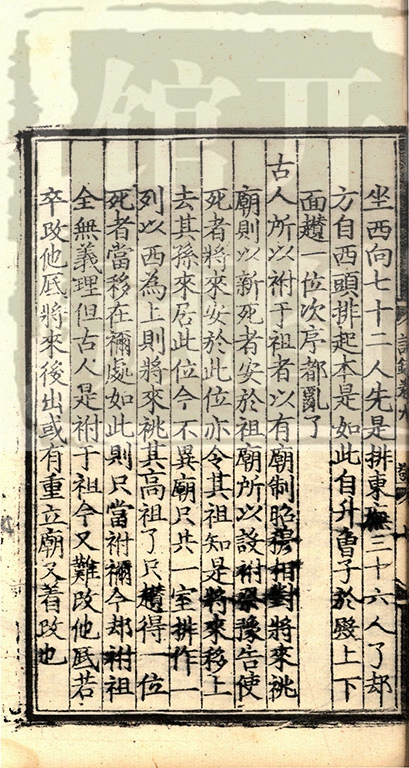 坐西向七十二人先是排東廡三十六人了却
方自西頭排起本是如此自升曾子於殿上下
面趲一位次序都亂了
古人所以祔于祖者以有廟制昭穆相對將來祧
廟則以新死者安於祖廟所以設祔祭豫告使
死者將來安於此位亦令其祖知是將來移上
去其孫來居此位今不異廟只共一室排作一
列以西為上則將來祧其高祖了只趲得一位
死者當移在禰處如此則只當祔禰今却祔祖
全無義理但古人是祔于祖今又難改他底若
卒改他底將來後出或有重立廟又着改也